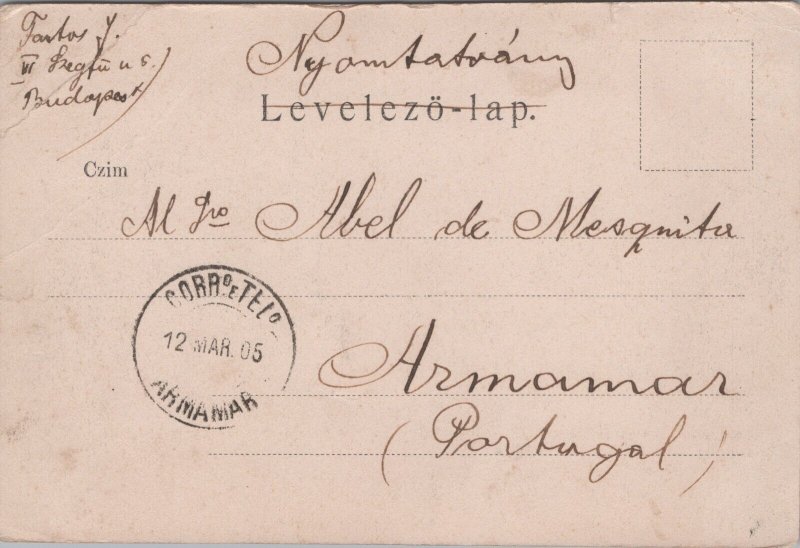 Tartos J.
VI Szegfü u 6.
Budapest
Nyomtatvány
Levelező-lap.
Czim
Al Sro Abel de Mesquita
CORRº E TELº
12 MAR. 05
ARMAMAR
Armamar
(Portugal)